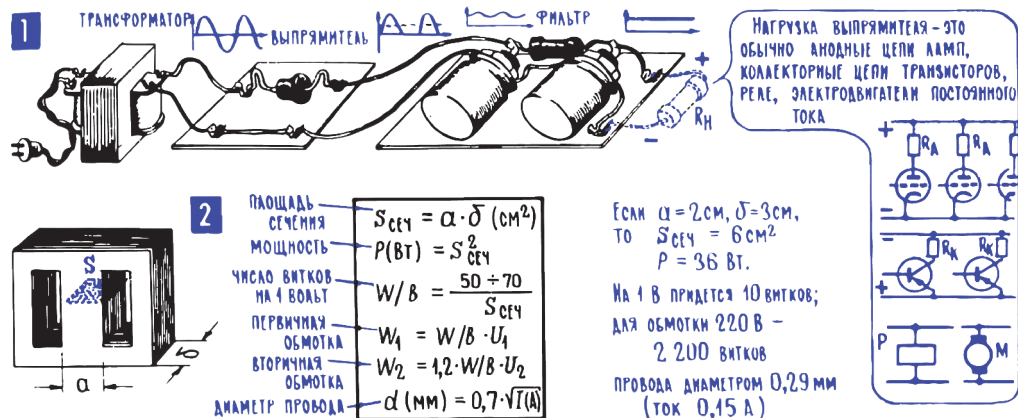 1
ТРАНСФОРМАТОР
ВЫПРЯМИТЕЛЬ
ФИЛЬТР
+
Rн
−
НАГРУЗКА ВЫПРЯМИТЕЛЯ - ЭТО
ОБЫЧНО АНОДНЫЕ ЦЕПИ ЛАМП,
КОЛЛЕКТОРНЫЕ ЦЕПИ ТРАНЗИСТОРОВ,
РЕЛЕ, ЭЛЕКТРОДВИГАТЕЛИ ПОСТОЯННОГО
ТОКА
+
RА
RА
−
−
Rк
Rк
+
Р
М
2
S
a
δ
ПЛОЩАДЬ
СЕЧЕНИЯ
Sсеч = a·δ (см²)
МОЩНОСТЬ
P(Вт) = S²сеч
ЧИСЛО ВИТКОВ
НА 1 ВОЛЬТ
W/В = 50 ÷ 70 / Sсеч
ПЕРВИЧНАЯ
ОБМОТКА
W₁ = W/В · U₁
ВТОРИЧНАЯ
ОБМОТКА
W₂ = 1,2·W/В·U₂
ДИАМЕТР ПРОВОДА
d (мм) = 0,7·√I(А)
Если a = 2см, δ = 3см,
то Sсеч = 6см²
P = 36 Вт.
На 1 В придется 10 витков;
для обмотки 220 В -
2 200 витков
провода диаметром 0,29 мм
(ток 0,15 А)